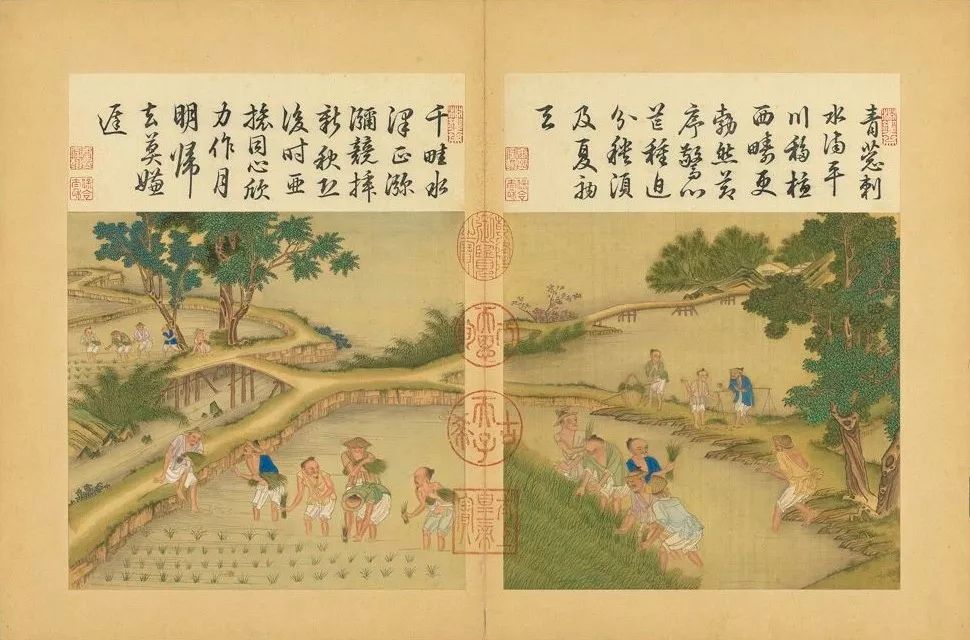 青葱刺
水滿平
川移植
西疇更
勃然節
序驚心
芒種迫
分秧須
及夏初
天
千畦水
澤正瀰
瀰競插
新秧恐
後時亞
旅同心欣
力作月
明歸
去莫嫌
遲
古稀天子